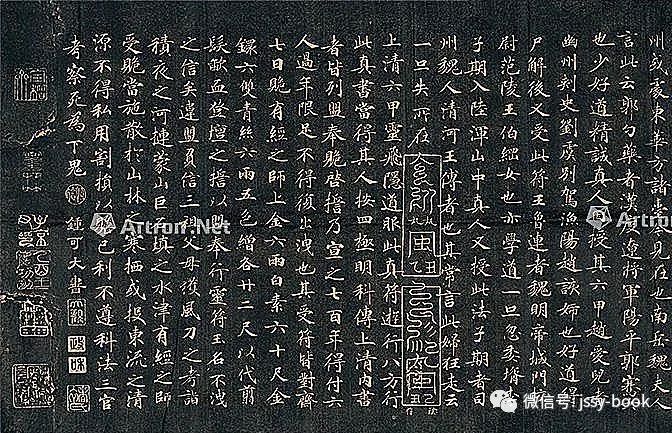 州或處東華方諸臺今見在也南岳魏夫人
言此云郭勺藥者漢度遼將軍陽平郭騫女
也少好道精誠真人因授其六甲趙愛兒者
幽州刺史劉虞別駕漁陽趙該婦也好道得
尸解後又受此符王魯連者魏明帝城門校
尉范陵王伯綱女也亦學道一旦忽委壻李
子期入陸渾山中真人又授此法子期者司
州魏人清河王傳者也其常言此婦狂走云
一旦失所在
上清六甲靈飛隱道服此真符遊行八方行
此真書當得其人按四極明科傳上清內書
者皆列盟奉貺啟誓乃宣之七百年得付六
人過年限足不得復出洩也其受符皆對齊
七日貺有經之師上金六兩白素六十尺金
鐶六雙青絲六兩五色繒各廿二尺以代翦
髮歃血登壇之誓以盟奉行靈符玉名不洩
之信矣違盟負信三祖父母獲風刀之考詣
積夜之河揵蒙山巨石填之水津有經之師
受貺當施散於山林之寒栖或投東流之清
源不得私用割損以贍己利不遵科法三官
考察死為下鬼
鍾可大書
Artron.Net
Artron.Net
微信号: jssy-book